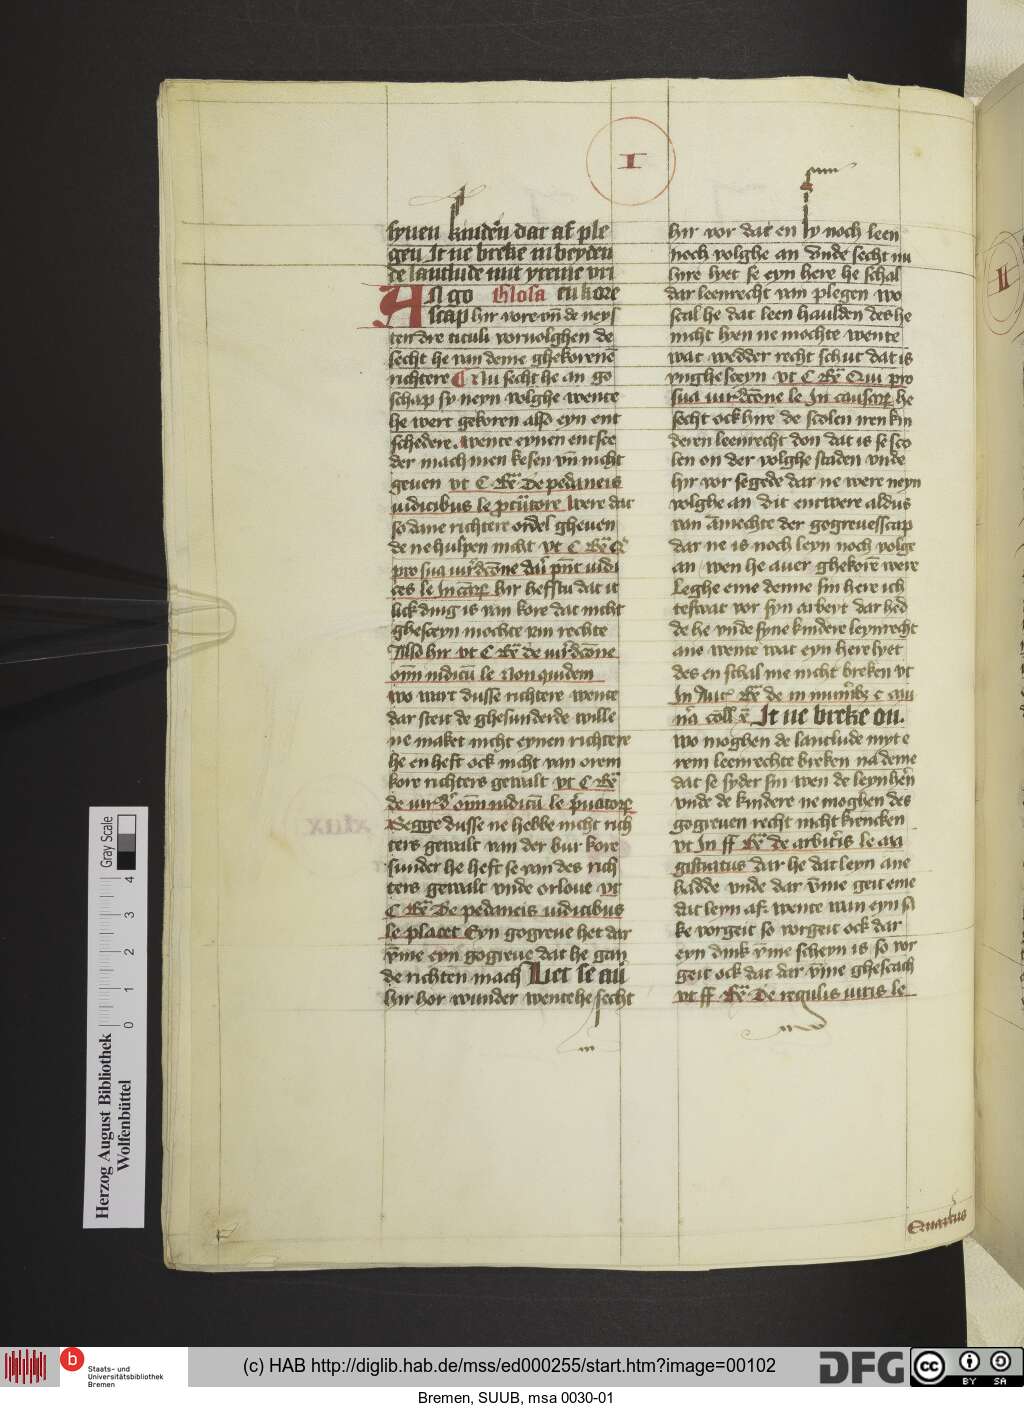 I
synen kinderen dar af ple
gen It ne breke in beyden
de lantlude mit yreme vri
An go Glosa tu kore
scap hir vore vn̄ de neys
ten dre tituli vorvolghen de
secht he van deme ghekorenē
richtere Nu secht he an go
schap sy neyn volghe wente
he wert gekoren also eyn ent
schedere wente eynen entsce
der mach men kesen vn̄ nicht
geuen vt C Re De pedaneis
iudicibus le
were dat
so dane richtere ordel gheuen
de ne hulpen nicht vt C Re
pro sua
hir hefstu dat it
lick ding is van kore dat nicht
ghesceyn mochte van rechte
Also hir vt C Re de
le Non quidem
wo wart dusse richtere wente
dar steit de ghesunderde wille
ne maket nicht eynen richtere
he en heft ock nicht van orem
kore richters gewalt vt C Re
de
Segge dusse ne hebbe nicht rich
ters gewalt van der bur kore
sunder he heft se van des rich
ters gewalt vnde orloue vt
C Re De pedaneis iudicibus
le placet Eyn gogreue het dar
vme eyn gogreue dat he gan
de richten mach Liet se an
hir hor wunder wente he secht
hir vor dat en sy noch leen
noch volghe an vnde secht nu
hire lyet se eyn here he schal
dar leenrecht van plegen wo
scal he dat leen haulden des he
nicht lyen ne mochte wente
wat wedder recht schut dat is
vnghesceyn vt C Re Qui pro
sua iurdcōne le In causarum he
secht ock hire de scolen iren kin
deren leenrecht don dat is se sco
len on der volghe staden vnde
hir vor segede dar ne were neyn
volghe an dit entwere aldus
van amechte der gogreuesscap
dar ne is noch leyn noch volge
an wen he auer ghekorē were
Leghe eme denne sin here ich
teswat vor syn arbeyt dar hed
de he vnde syne kindere leynrecht
ane wente wat eyn here lyet
des en schal me nicht breken vt
In Aut Re de
It ne breke on.
wo moghen de lantlude myt e
rem leenrechte breken na deme
dat se syder sin wen de leynherē
vnde de kindere ne moghen des
gogreuen recht nicht krencken
vt In ff Re de arbitris le
dar he dat leyn ane
hadde vnde dar vme geit eme
dat leyn af. wente wan eyn sa
ke vorgeit so vorgeit ock dar
eyn dink vme scheyn is so vor
geit ock dat dar vme ghescach
vt ff Re De regulis iuris le
Quartus
II
Herzog August Bibliothek
Wolfenbüttel
0 1 2 3 4
Gray Scale
b Staats- und
Universitätsbibliothek
Bremen
(c) HAB http://diglib.hab.de/mss/ed000255/start.htm?image=00102
DFG
cc BY SA
Bremen, SUUB, msa 0030-01